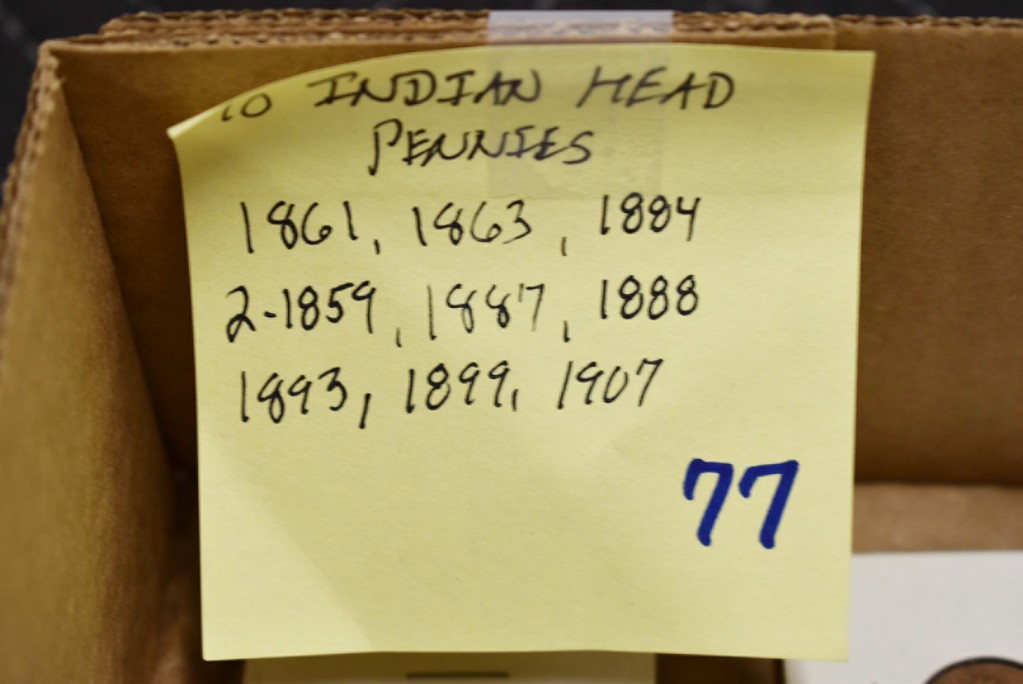 10 INDIAN HEAD
PENNIES
1861, 1863, 1884
2-1859, 1887, 1888
1893, 1899, 1907
77